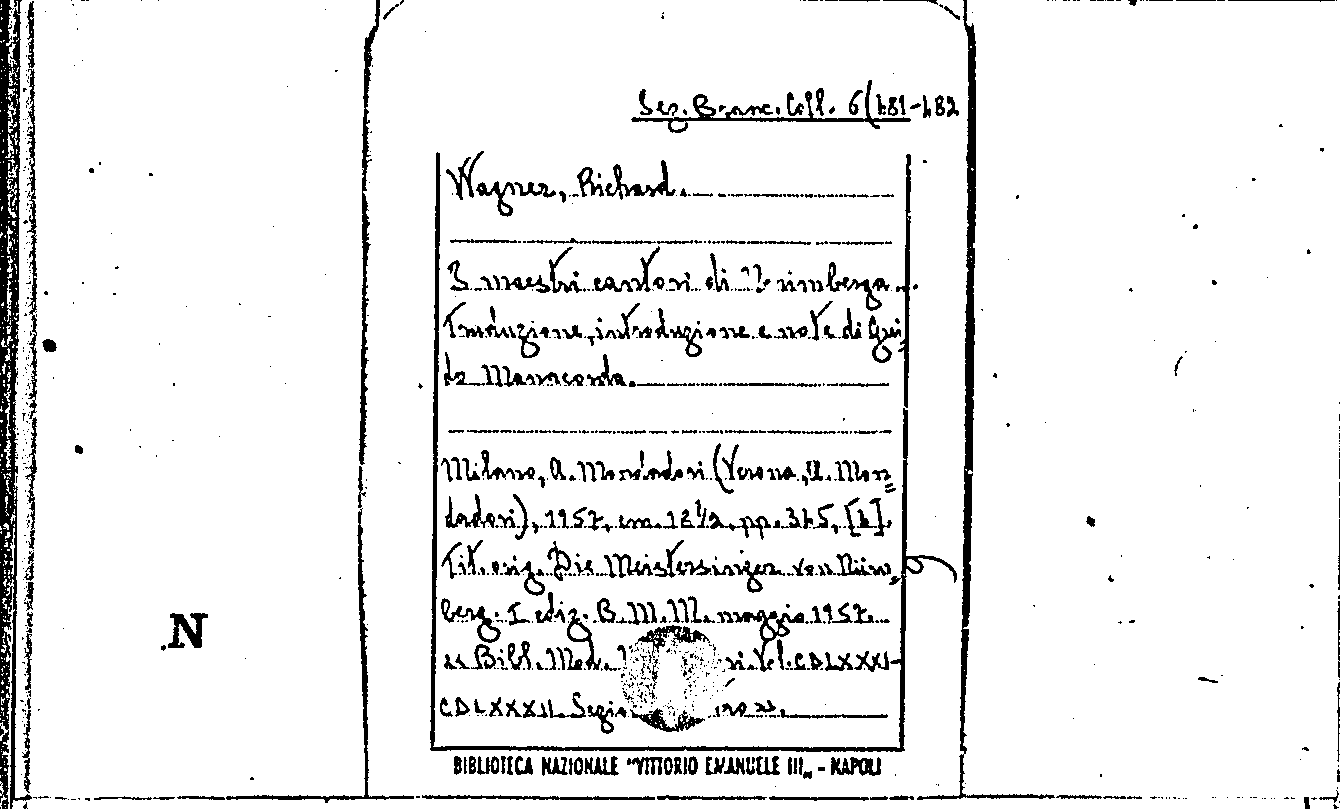 Sez. Branc. Coll. 6(481-482
Wagner, Richard.
I maestri cantori di Norimberga...
Traduzione, introduzione e note di Gui=
do Manacorda.
Milano, A. Mondadori (Verona, A. Mon=
dadori), 1957, cm. 18½, pp. 345, [4].
Tit. orig. Die Meistersinger von Nürn=
berg. I ediz. B. M. M. maggio 1957.
« Bibl. Mod. Vol. CDLXXXI-
CDLXXXII
N
BIBLIOTECA NAZIONALE "VITTORIO EMANUELE III„ - NAPOLI